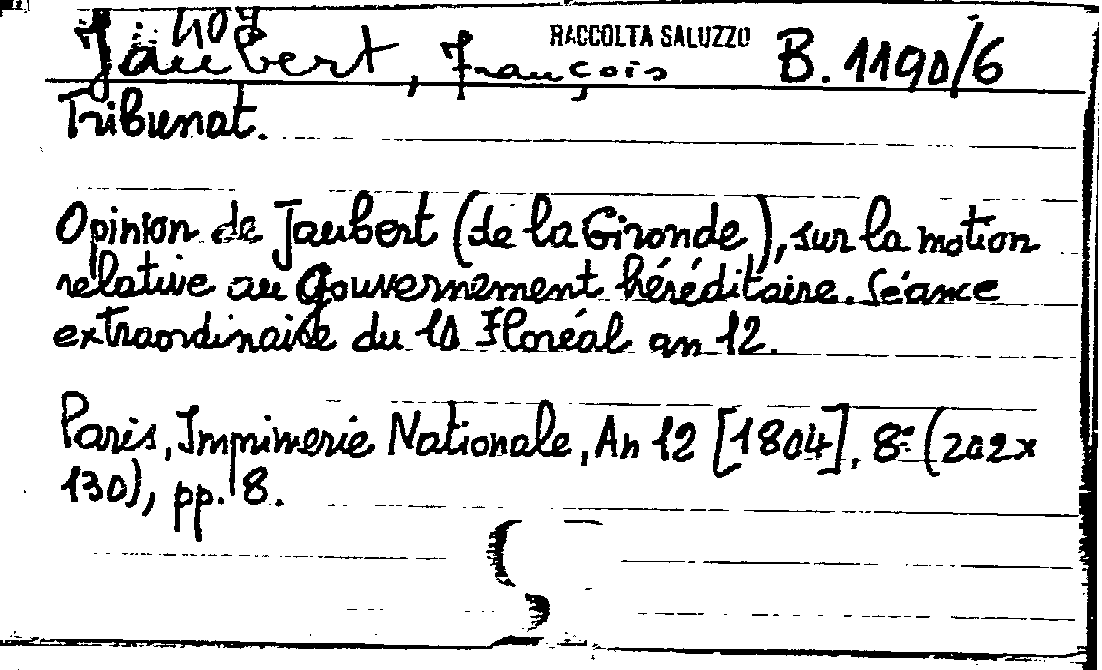 407
Jaubert, François RACCOLTA SALUZZO B. 1190/6
Tribunat.
Opinion de Jaubert (de la Gironde), sur la motion
relative au Gouvernement héréditaire. Séance
extraordinaire du 10 Floréal an 12.
Paris, Imprimerie Nationale, An 12 [1804]. 8º (202x
130), pp. 8.